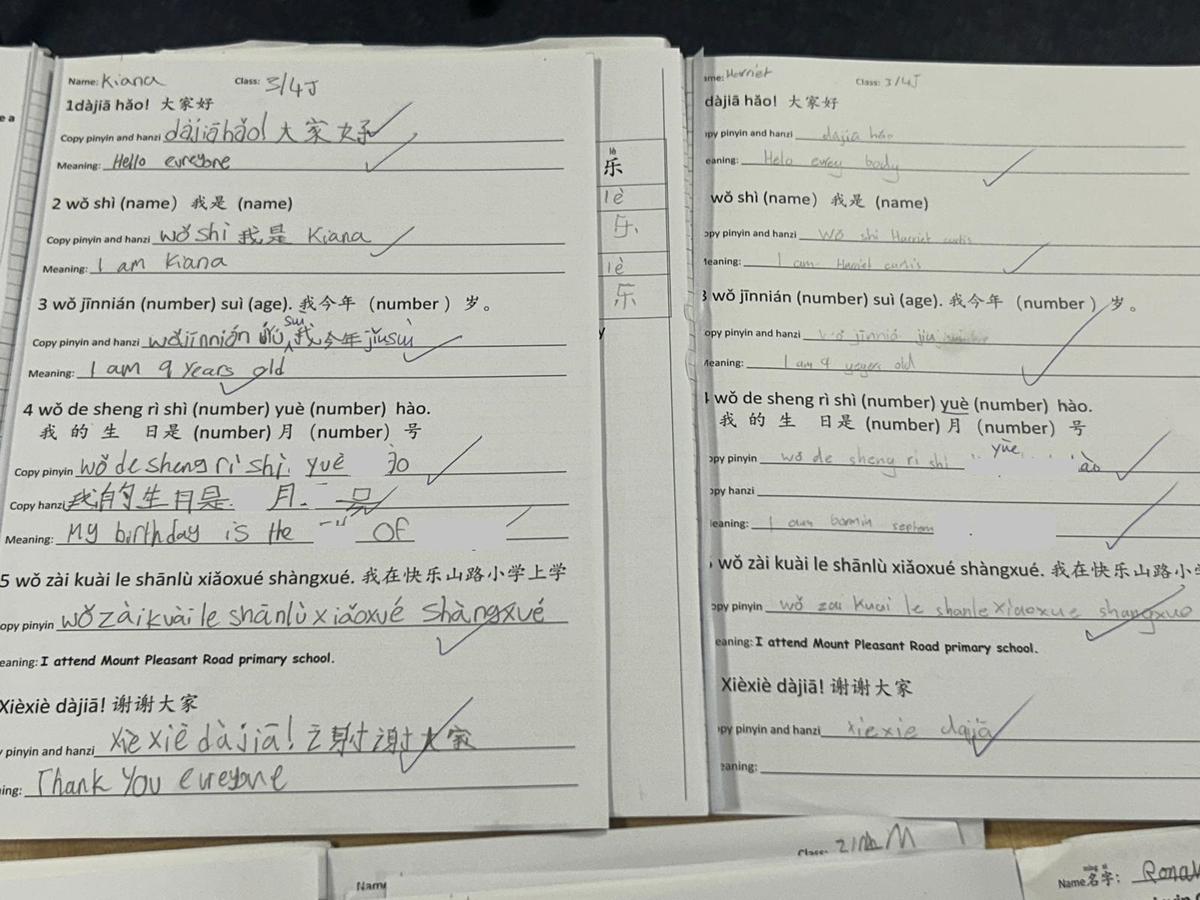 Name: Kiana Class: 3/4J
1dàjiā hǎo! 大家好
Copy pinyin and hanzi dàjiāhǎo! 大家好
Meaning: Hello evreyone
2 wǒ shì (name) 我是 (name)
Copy pinyin and hanzi wǒ shì 我是 Kiana
Meaning: I am Kiana
3 wǒ jīnnián (number) suì (age). 我今年 (number) 岁。
Copy pinyin and hanzi wǒjīnnián jiǔ suì 我今年jiǔsuì
Meaning: I am 9 years old
4 wǒ de sheng rì shì (number) yuè (number) hào.
我 的 生 日是 (number) 月 (number) 号
Copy pinyin wǒ de sheng rì shì yuè
Copy hanzi 我的生日是 月 号
Meaning: My birthday is the OF
5 wǒ zài kuài le shānlù xiǎoxué shàngxué. 我在快乐山路小学上学
opy pinyin wǒ zài kuài le shānlù xiǎoxué shàngxué
eaning: I attend Mount Pleasant Road primary school.
Xièxiè dàjiā! 谢谢大家
pinyin and hanzi xiè xiè dàjiā! 谢谢大家
ing: Thank you evreyone
e a
lè
乐
lè
乐
lè
乐
y
ame: Harriet Class: 3/4J
dàjiā hǎo! 大家好
opy pinyin and hanzi dajia hǎo
eaning: Helo evrey body
wǒ shì (name) 我是 (name)
opy pinyin and hanzi wǒ shi Harriet curtis
Meaning: I am Harriet curtis
3 wǒ jīnnián (number) suì (age). 我今年 (number) 岁。
opy pinyin and hanzi wǒ jinniá jiu
Meaning: I am 9 yeyers old
4 wǒ de sheng rì shì (number) yuè (number) hào.
我 的 生 日是 (number) 月 (number) 号
opy pinyin wo de sheng ri shi yüe ào
opy hanzi
eaning: I am bormin
wǒ zài kuài le shānlù xiǎoxué shàngxué. 我在快乐山路小
opy pinyin wǒ zai kuai le shanle xiaoxue shangxue
eaning: I attend Mount Pleasant Road primary school.
Xièxiè dàjiā! 谢谢大家
opy pinyin and hanzi xiexie dajiā
eaning:
Name
Class: M
míng zì
Name名字: Rona